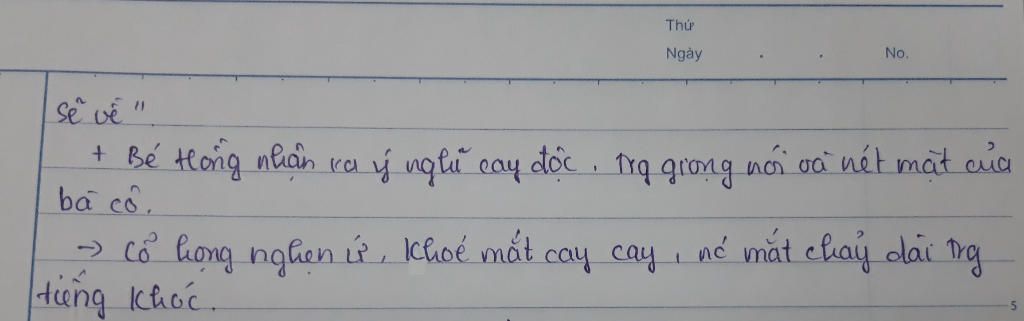 Thứ
Ngày . . No.
sẽ về".
+ Bé Hồng nhận ra ý nghĩ cay độc, trg giọng nói và nét mặt của
bà cô.
→ Cổ họng nghẹn ứ, khoé mắt cay cay, nc mắt chảy dài trg
tiếng khóc.
5